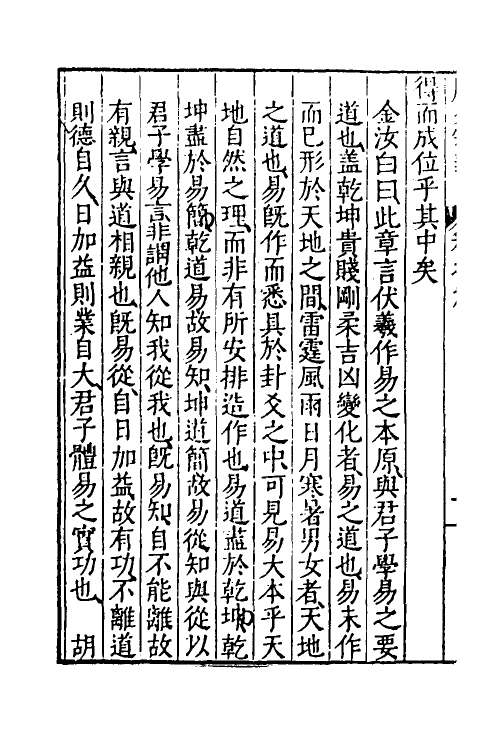 得而成位乎其中矣
金汝白曰此章言伏羲作易之本原與君子學易之要
道也蓋乾坤貴賤剛柔吉凶變化者易之道也易未作
而已形於天地之間雷霆風雨日月寒暑男女者天地
之道也易旣作而悉具於卦爻之中可見易大本乎天
地自然之理而非有所安排造作也易道蓋於乾坤乾
坤盡於易簡乾道易故易知坤道簡故易從知與從以
君子學易言非謂他人知我從我也旣易知自不能離故
有親言與道相親也旣易從自日加益故有功不離道
則德自久日加益則業自大君子體易之實功也 胡